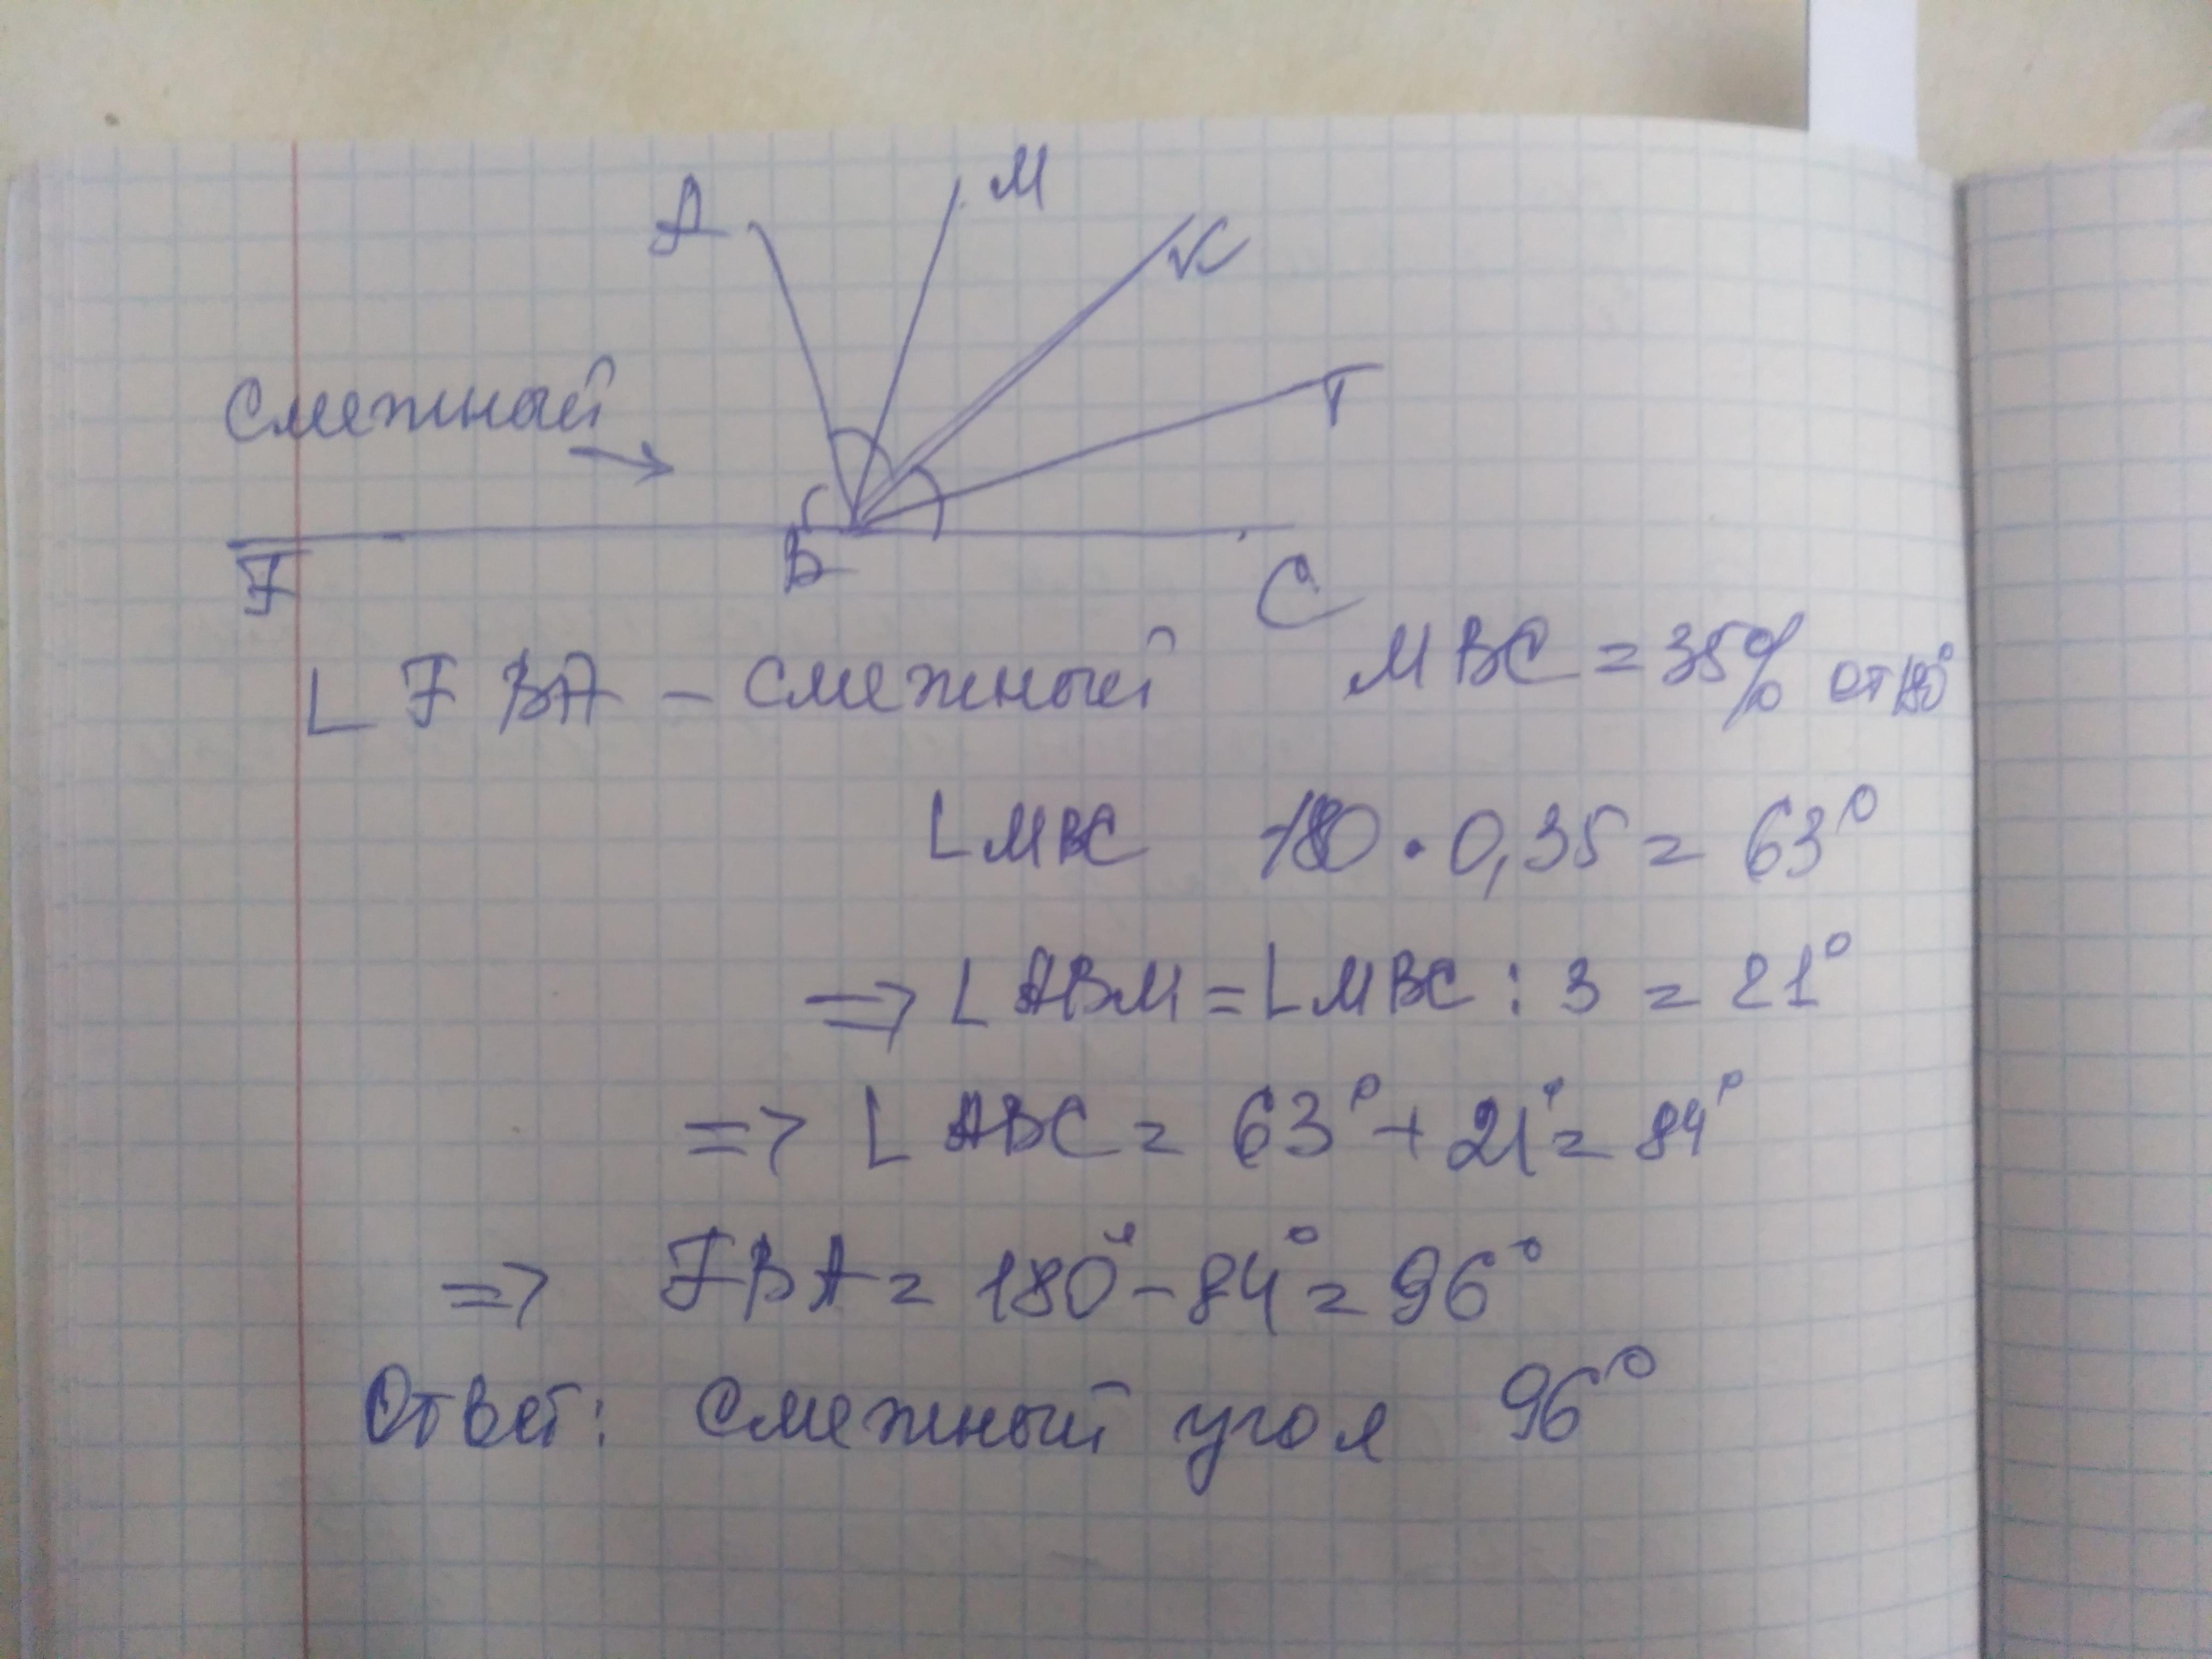 A M
K
Смежный
T
F B C
∟FBA – смежный MBC = 35% от 180°
∟MBC 180 · 0,35 = 63°
=> ∟ABM = ∟MBC : 3 = 21°
=> ∟ABC = 63° + 21° = 84°
=> FBA = 180° – 84° = 96°
Ответ: Смежный угол 96°